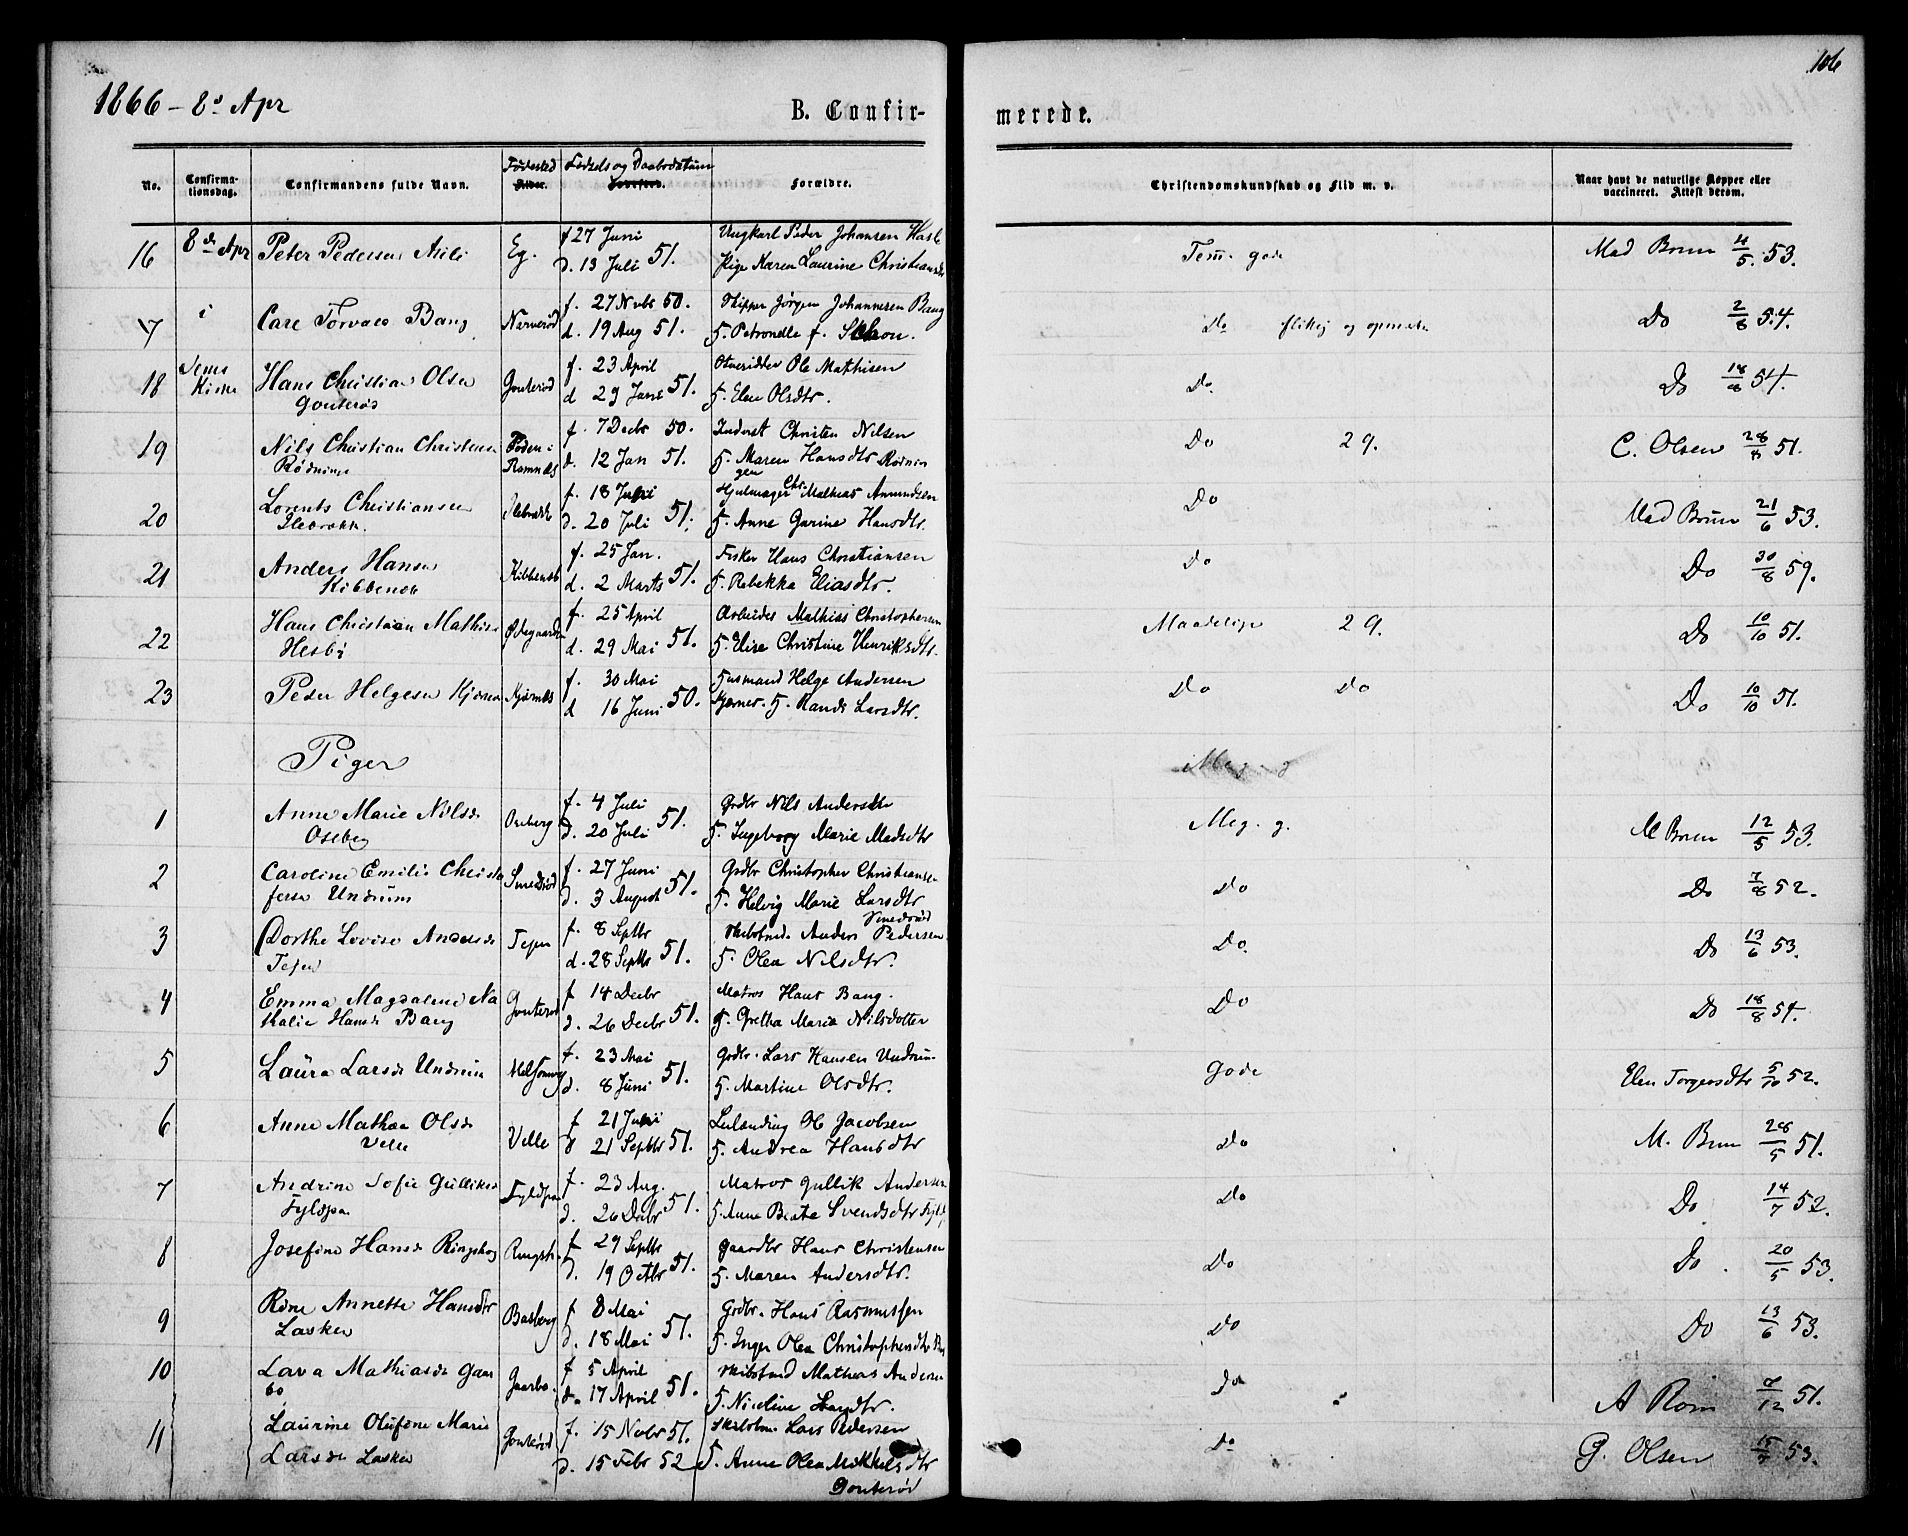 106
1866 - 8de Apr
B. Confir-
merede.
No.
Confirma-
tionsdag.
Confirmandens fulde Navn.
Fødested
Alder.
Fødsels og Daabsdatum
Forældre.
Christendomskundskab og Flid m. v.
Naar havt de naturlige Kopper eller
vaccineret. Attest derom.
16 8de Apr Peter Pedersen Eg. f 27 Juni Ungkarl Peder Johansen Tem. gode Mad Brun 4/5 53.
d. 13 Juli 51. Pige Karen Laurine
17 i Carl Torvald Bang Narverød f. 27 Nvbr 50. Skipper Jørgen Johannesen Bang Do Do 2/8 54.
d. 19 Aug 51. H. Petronelle f.
18 Sems Hans Christian Olsen Gonterød f. 23 April Ole Mathisen Do. Do 18/8 54.
Kirke Gonterød d 29 Juni 51. H. Elen Olsdtr.
19 Nils Christian Christensen Føden i f. 7 Decbr 50. Inderst Christen Nilsen Do 29. C. Olsen 51.
Ramnæs d. 12 Jan 51. H. Maren Hansdtr Rødnin
gen
20 Lorents Christiansen f. 18 Juni Hjulmager Chr. Mathias Amundsen Do Mad Brun 21/6 53.
d. 20 Juli 51. H. Anne Gurine Hansdtr.
21 Anders Hansen f. 25 Jan. Fisker Hans Christiansen Do Do 30/8 59.
d. 2 Marts 51. H. Rebekka Eliasdtr.
22 Hans Christian Mathisen Ødegaarden f. 25 April Arbeider Mathias Christophersen Maadelige 29. Do 10/10 51.
Hesby d. 29 Mai 51. H. Elise Christine Henriksdtr.
23 Peder Helgesen Kjærnes f. 30 Mai Husmand Helge Andersen Do Do Do 10/10 51.
d 16 Juni 50. Kjærnes. H. Randi Larsdtr.
Piger
Meg. g
1 Anne Marie Nilsdr Oseberg f. 4 Juli Grdbr Nils Andersen Meg. g. M Brun 12/5 53.
Oseberg d. 20 Juli 51. H. Ingeborg Marie Madsdtr
2 Caroline Emilie Christo Smedsrød f. 27 Juni Grdbr Christopher Christiansen do Do 7/8 52.
fersen Undrum d. 3 August 51. H. Helvig Marie Larsdtr
Smedsrød
3 Dorthe Lovise Andersdr f. 8 Septbr Anders Pedersen Do. Do 13/6 53.
d. 28 Septbr 51. H. Olea Nilsdtr.
4 Emma Magdalene Na Gonterød f 14 Decbr Matros Hans Bang. Do Do 18/8 54.
thalie Hansdr Bang d. 26 Decbr 51. H. Grethe Maria Nilsdotter
5 Laura Larsdr Undrum Melsomvig f. 23 Mai Grdbr. Lars Hansen Undrum gode Elen Torgersdtr 5/10 52.
d. 8 Juni 51. H. Martine Olsdtr.
6 Anne Mathea Olsdr Velle f 21 Juni Leilænding Ole Jacobsen do M. Brun 28/5 51.
Velle d 21 Septbr 51. H. Andrea Hansdtr
7 Andrine Sofie Gulliksdr Fyldpaa f. 23 Aug. Matros Gullik Andersen do Do 14/7 52.
Fyldpaa d. 26 Decbr 51. H. Anne Beate Svendsdtr
8 Josefine Hansdr Ringshoug f 29 Septbr Gaardbr Hans Christensen Do Do 20/5 53.
d. 19 Octbr 51. H. Maren Andersdtr.
9 Annette Hansdtr Basberg f 8 Mai Grdbr. Hans Rasmussen do Do 13/6 53.
Lasken d. 18 Mai 51. H. Inger Olea Christophersdtr
10 Lava Mathiasdr Gaar Gaarbo f 5 April Mathias Andersen do A Rom 7/12 51.
bo d. 17 April 51. H. Nicoline
11 Laurine Olufine Marie Gonterød f. 15 Novbr 51. Lars Pedersen do G. Olsen 53.
Larsdr Lasken d. 15 Febr 52 H. Anne Olea Mikkelsdtr
Gonterød